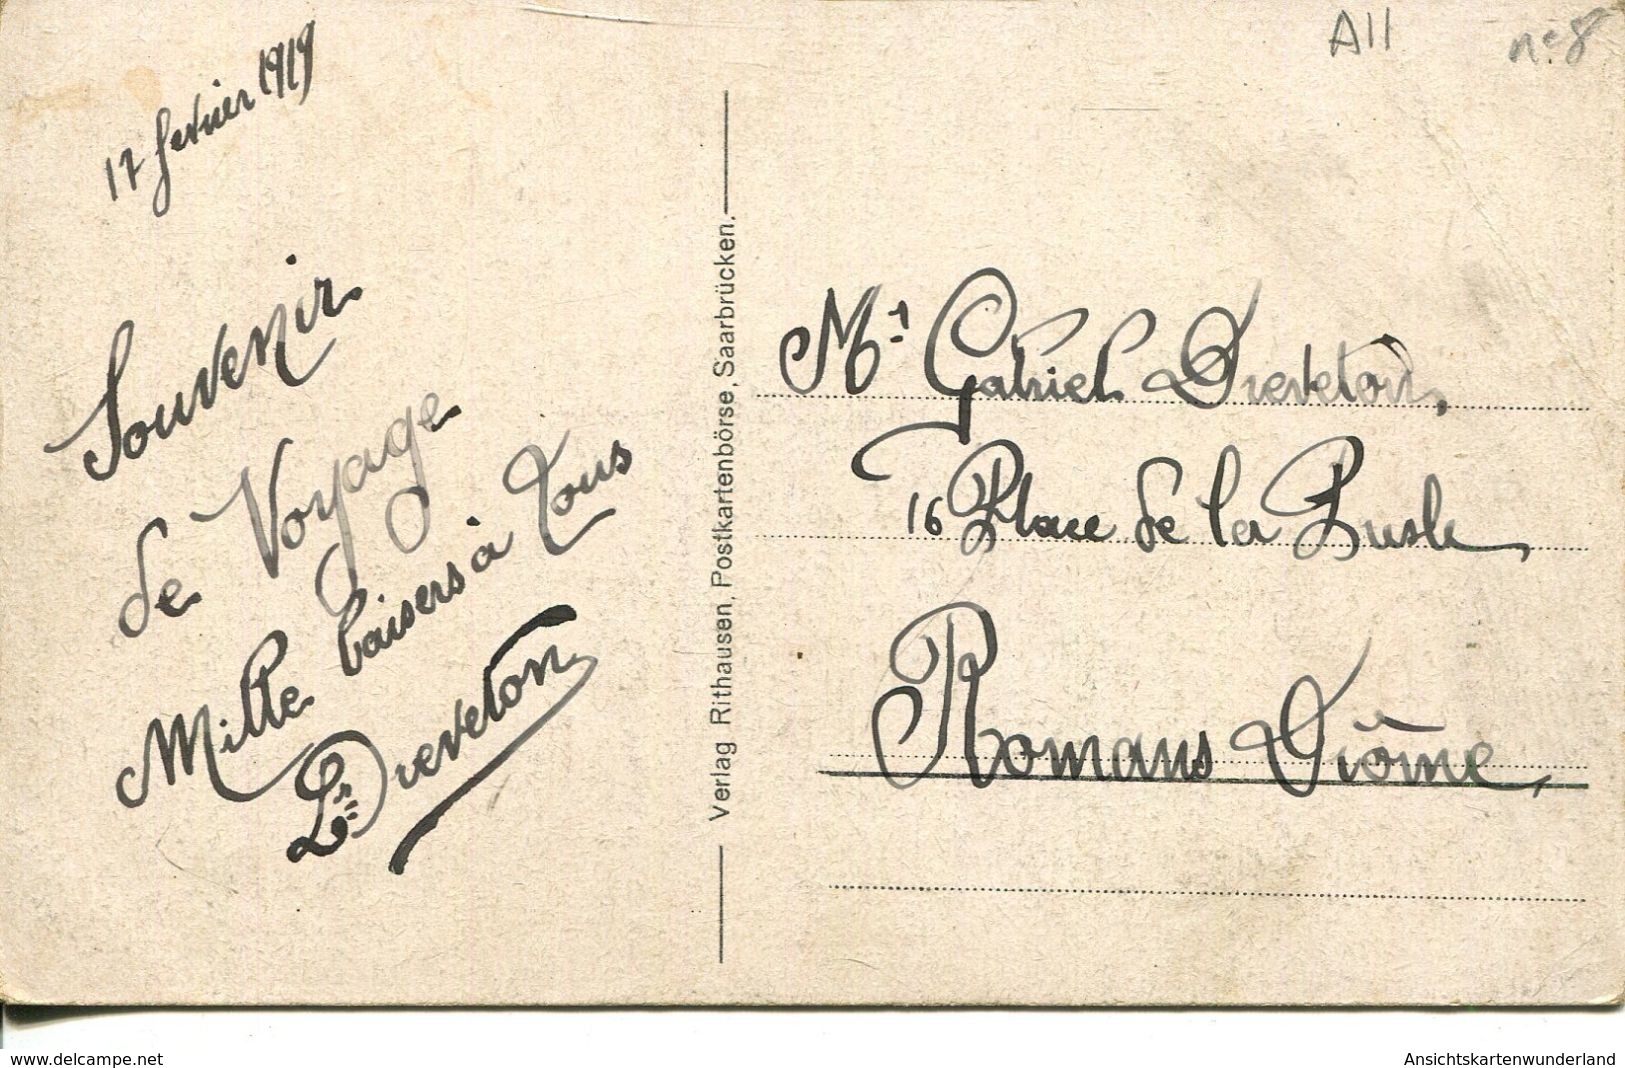 17 fevrier 1919
Souvenir
de Voyage
Mille baisers à Tous
Dreveton
Verlag Rithausen, Postkartenbörse, Saarbrücken.
A11
n° 8
Mr Gabriel Dreveton,
16 Place de la
Romans Drôme,
www.delcampe.net
Ansichtskartenwunderland